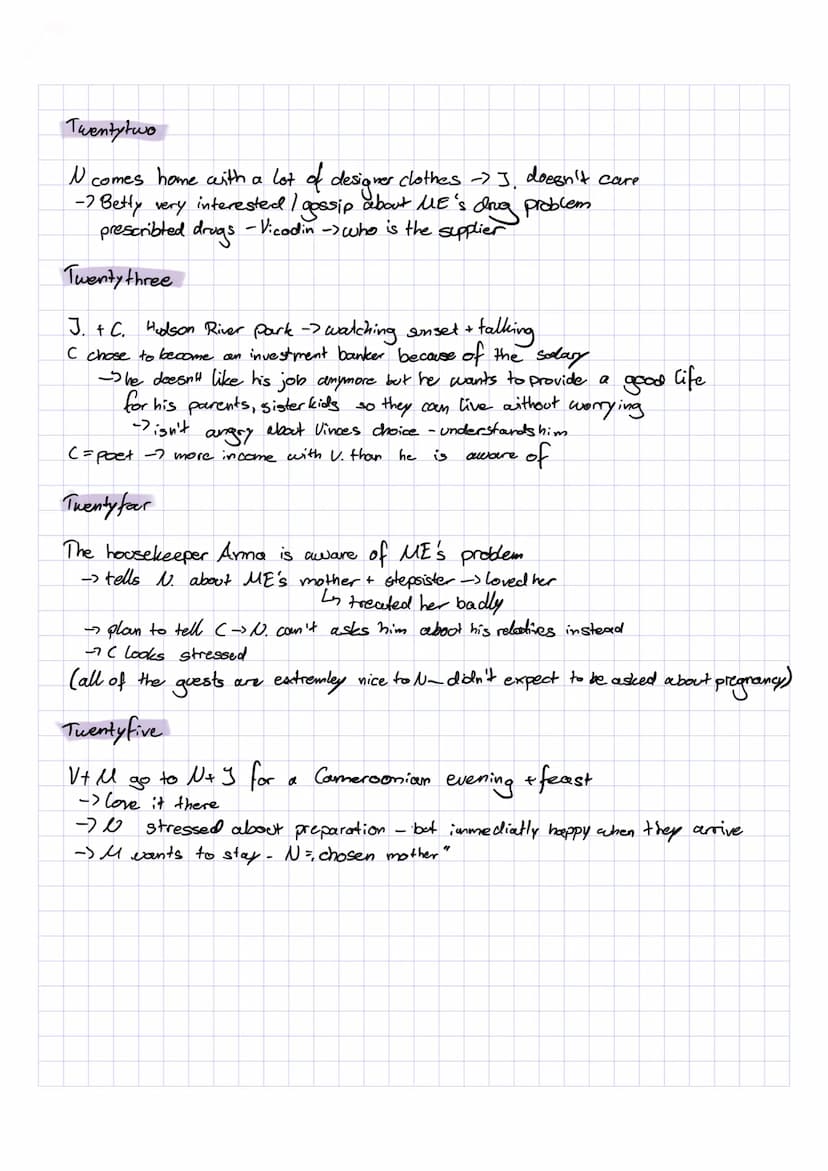 Twentytwo
N comes home with a lot of designer clothes -> J. doesn't care
-> Betty very interested / gossip about ME's drug problem
prescribted drugs - Vicodin -> who is the supplier
Twentythree
J. + C. Hudson River Park -> watching sunset + talking
C chose to become an investment banker because of the salary
-> he doesn't like his job anymore but he wants to provide a good life
for his parents, sister kids so they can live without worrying
-> isn't angry about Vinces choice - understands him
C = poet -> more in come with V. than he is aware of
Twentyfour
The housekeeper Anna is aware of ME's problem
-> tells N. about ME's mother + stepsister -> loved her
↳ treated her badly
-> plan to tell C -> N. can't asks him about his relatives instead
-> C looks stressed
(all of the guests are extremley nice to N - didn't expect to be asked about pregnancy)
Twentyfive
V + M go to N + J for a Cameroonian evening + feast
-> love it there
-> N stressed about preparation - but immediatly happy when they arrive
-> M wants to stay - N = „chosen mother"